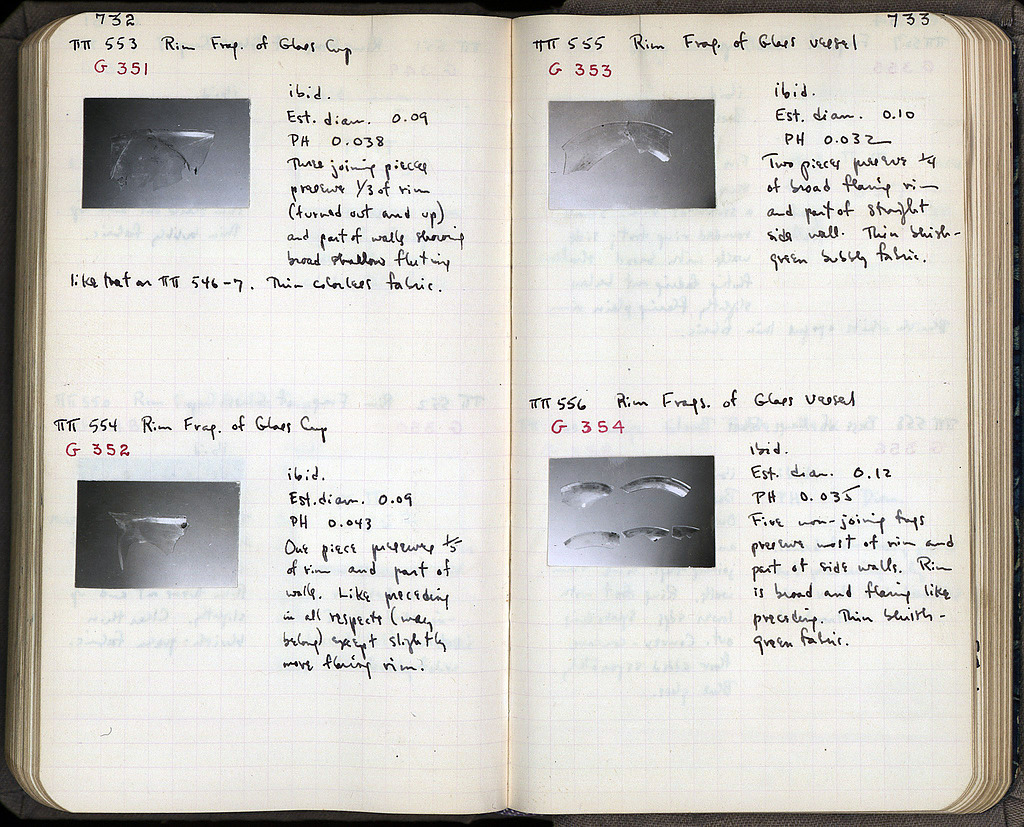 732
ΠΠ 553 Rim Frag. of Glass Cup
G 351
ibid.
Est. diam. 0.09
PH 0.038
Three joining pieces
preserve 1/3 of rim
(turned out and up)
and part of walls showing
broad shallow fluting
like that on ΠΠ 546-7. Thin colorless fabric.
ΠΠ 554 Rim Frag. of Glass Cup
G 352
ibid.
Est. diam. 0.09
PH 0.043
One piece preserves 1/5
of rim and part of
walls. Like preceding
in all respects (may
belong) except slightly
more flaring rim.
733
ΠΠ 555 Rim Frag. of Glass vessel
G 353
ibid.
Est. diam. 0.10
PH 0.032
Two pieces preserve 1/4
of broad flaring rim
and part of straight
side wall. Thin bluish-
green bubbly fabric.
ΠΠ 556 Rim Frags. of Glass vessel
G 354
ibid.
Est. diam. 0.12
PH 0.035
Five non-joining frags
preserve most of rim and
part of side walls. Rim
is broad and flaring like
preceding. Thin bluish-
green fabric.